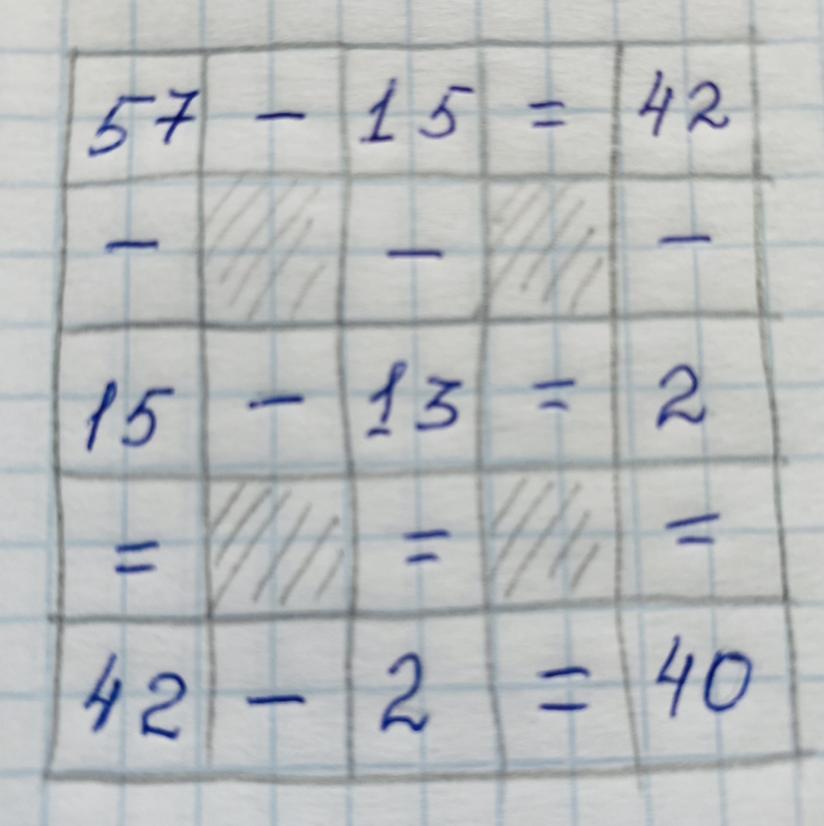 57 - 15 = 42
- - -
15 - 13 = 2
= = =
42 - 2 = 40